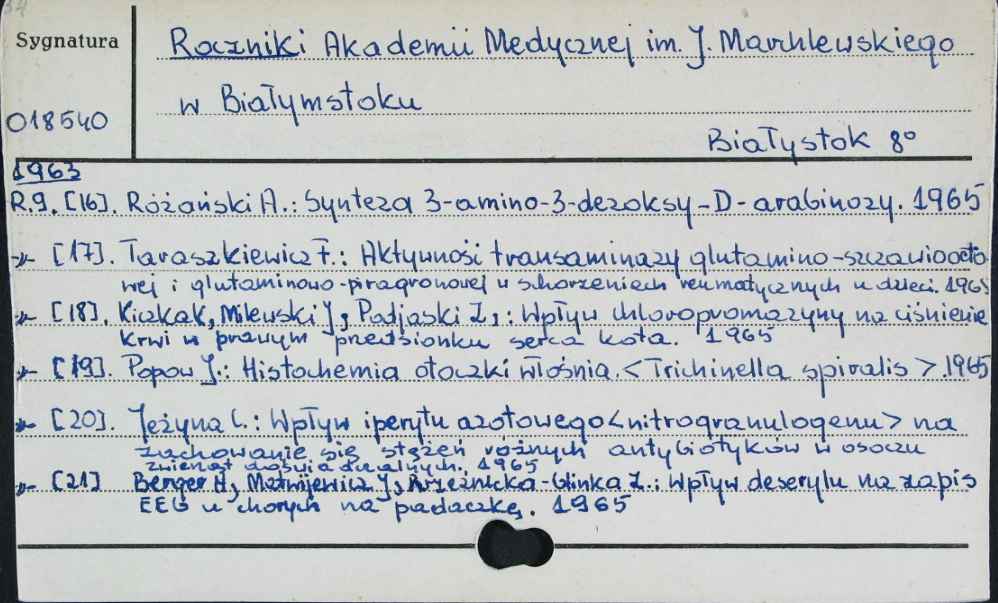 Sygnatura
Roczniki Akademii Medycznej im. J. Marchlewskiego
w Białymstoku
018540
Białystok 8°
1963
R.9. [16]. Różański A.: Synteza 3-amino-3-dezoksy-D-arabinozy. 1965
-"- [17]. Taraszkiewicz F.: Aktywność transaminazy glutamino-szczawioocto
wej i glutaminowo-pirogronowej w schorzeniach reumatycznych u dzieci. 1965
-"- [18]. Kiczkak, Milewski J, Podjaski Z,: Wpływ chloropromazyny na ciśnienie
krwi w prawym przedsionku serca kota. 1965
-"- [19]. Popow J.: Histochemia otoczki włośnia. <Trichinella spiralis>. 1965
-"- [20]. Jeżyna C.: Wpływ iperytu azotowego <nitrogranulogenu> na
zachowanie się stężeń różnych antybiotyków w osoczu
zwierząt doświadczalnych. 1965
-"- [21] Berger H, Matwijewicz J, Krzeźnicka-Glinka Z.: Wpływ deserylu na zapis
EEG u chorych na padaczkę. 1965